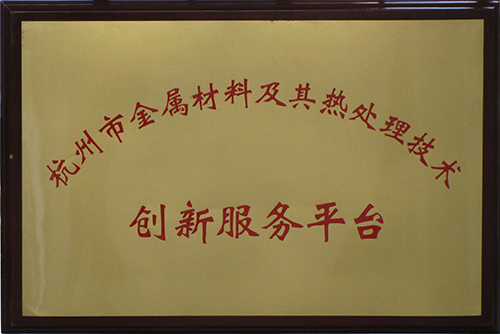 杭州市金属材料及其热处理技术
创新服务平台